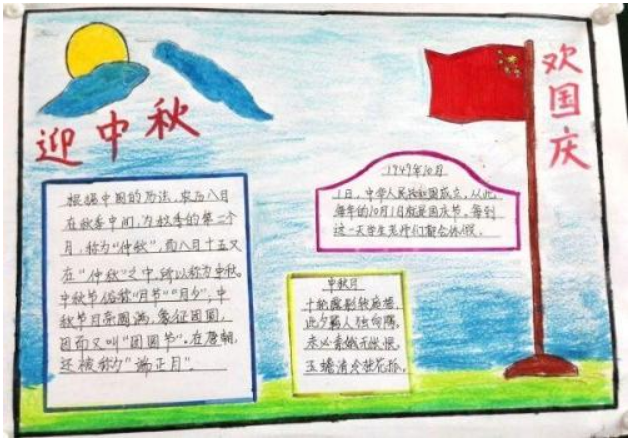 迎中秋
欢国庆
根据中国的历法,农历八月
在秋季中间,为秋季的第二个
月,称为“仲秋”,而八月十五又
在“仲秋”之中,所以称为中秋。
中秋节俗称“月节”“月夕”,中
秋节月亮圆满,象征团圆,
因而又叫“团圆节”。在唐朝,
还被称为“端正月”。
1949年10月
1日,中华人民共和国成立,从此
每年的10月1日就是国庆节,每到
这一天学生老师们都会休假。
中秋月
十轮霜影转庭梧,
此夕羁人独向隅。
未必素娥无怅恨,
玉蟾清冷桂花孤。